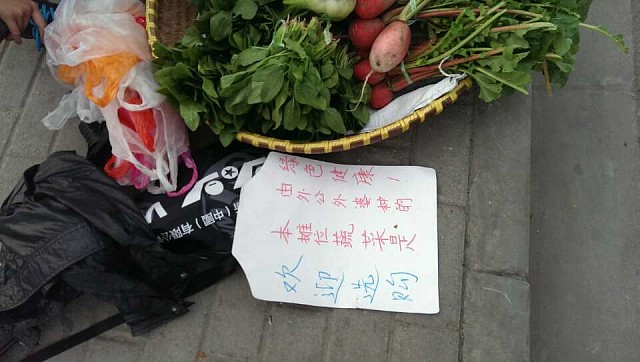 绿色健康！
由外公外婆种的
本摊位蔬菜是
欢迎选购
(中國)有限